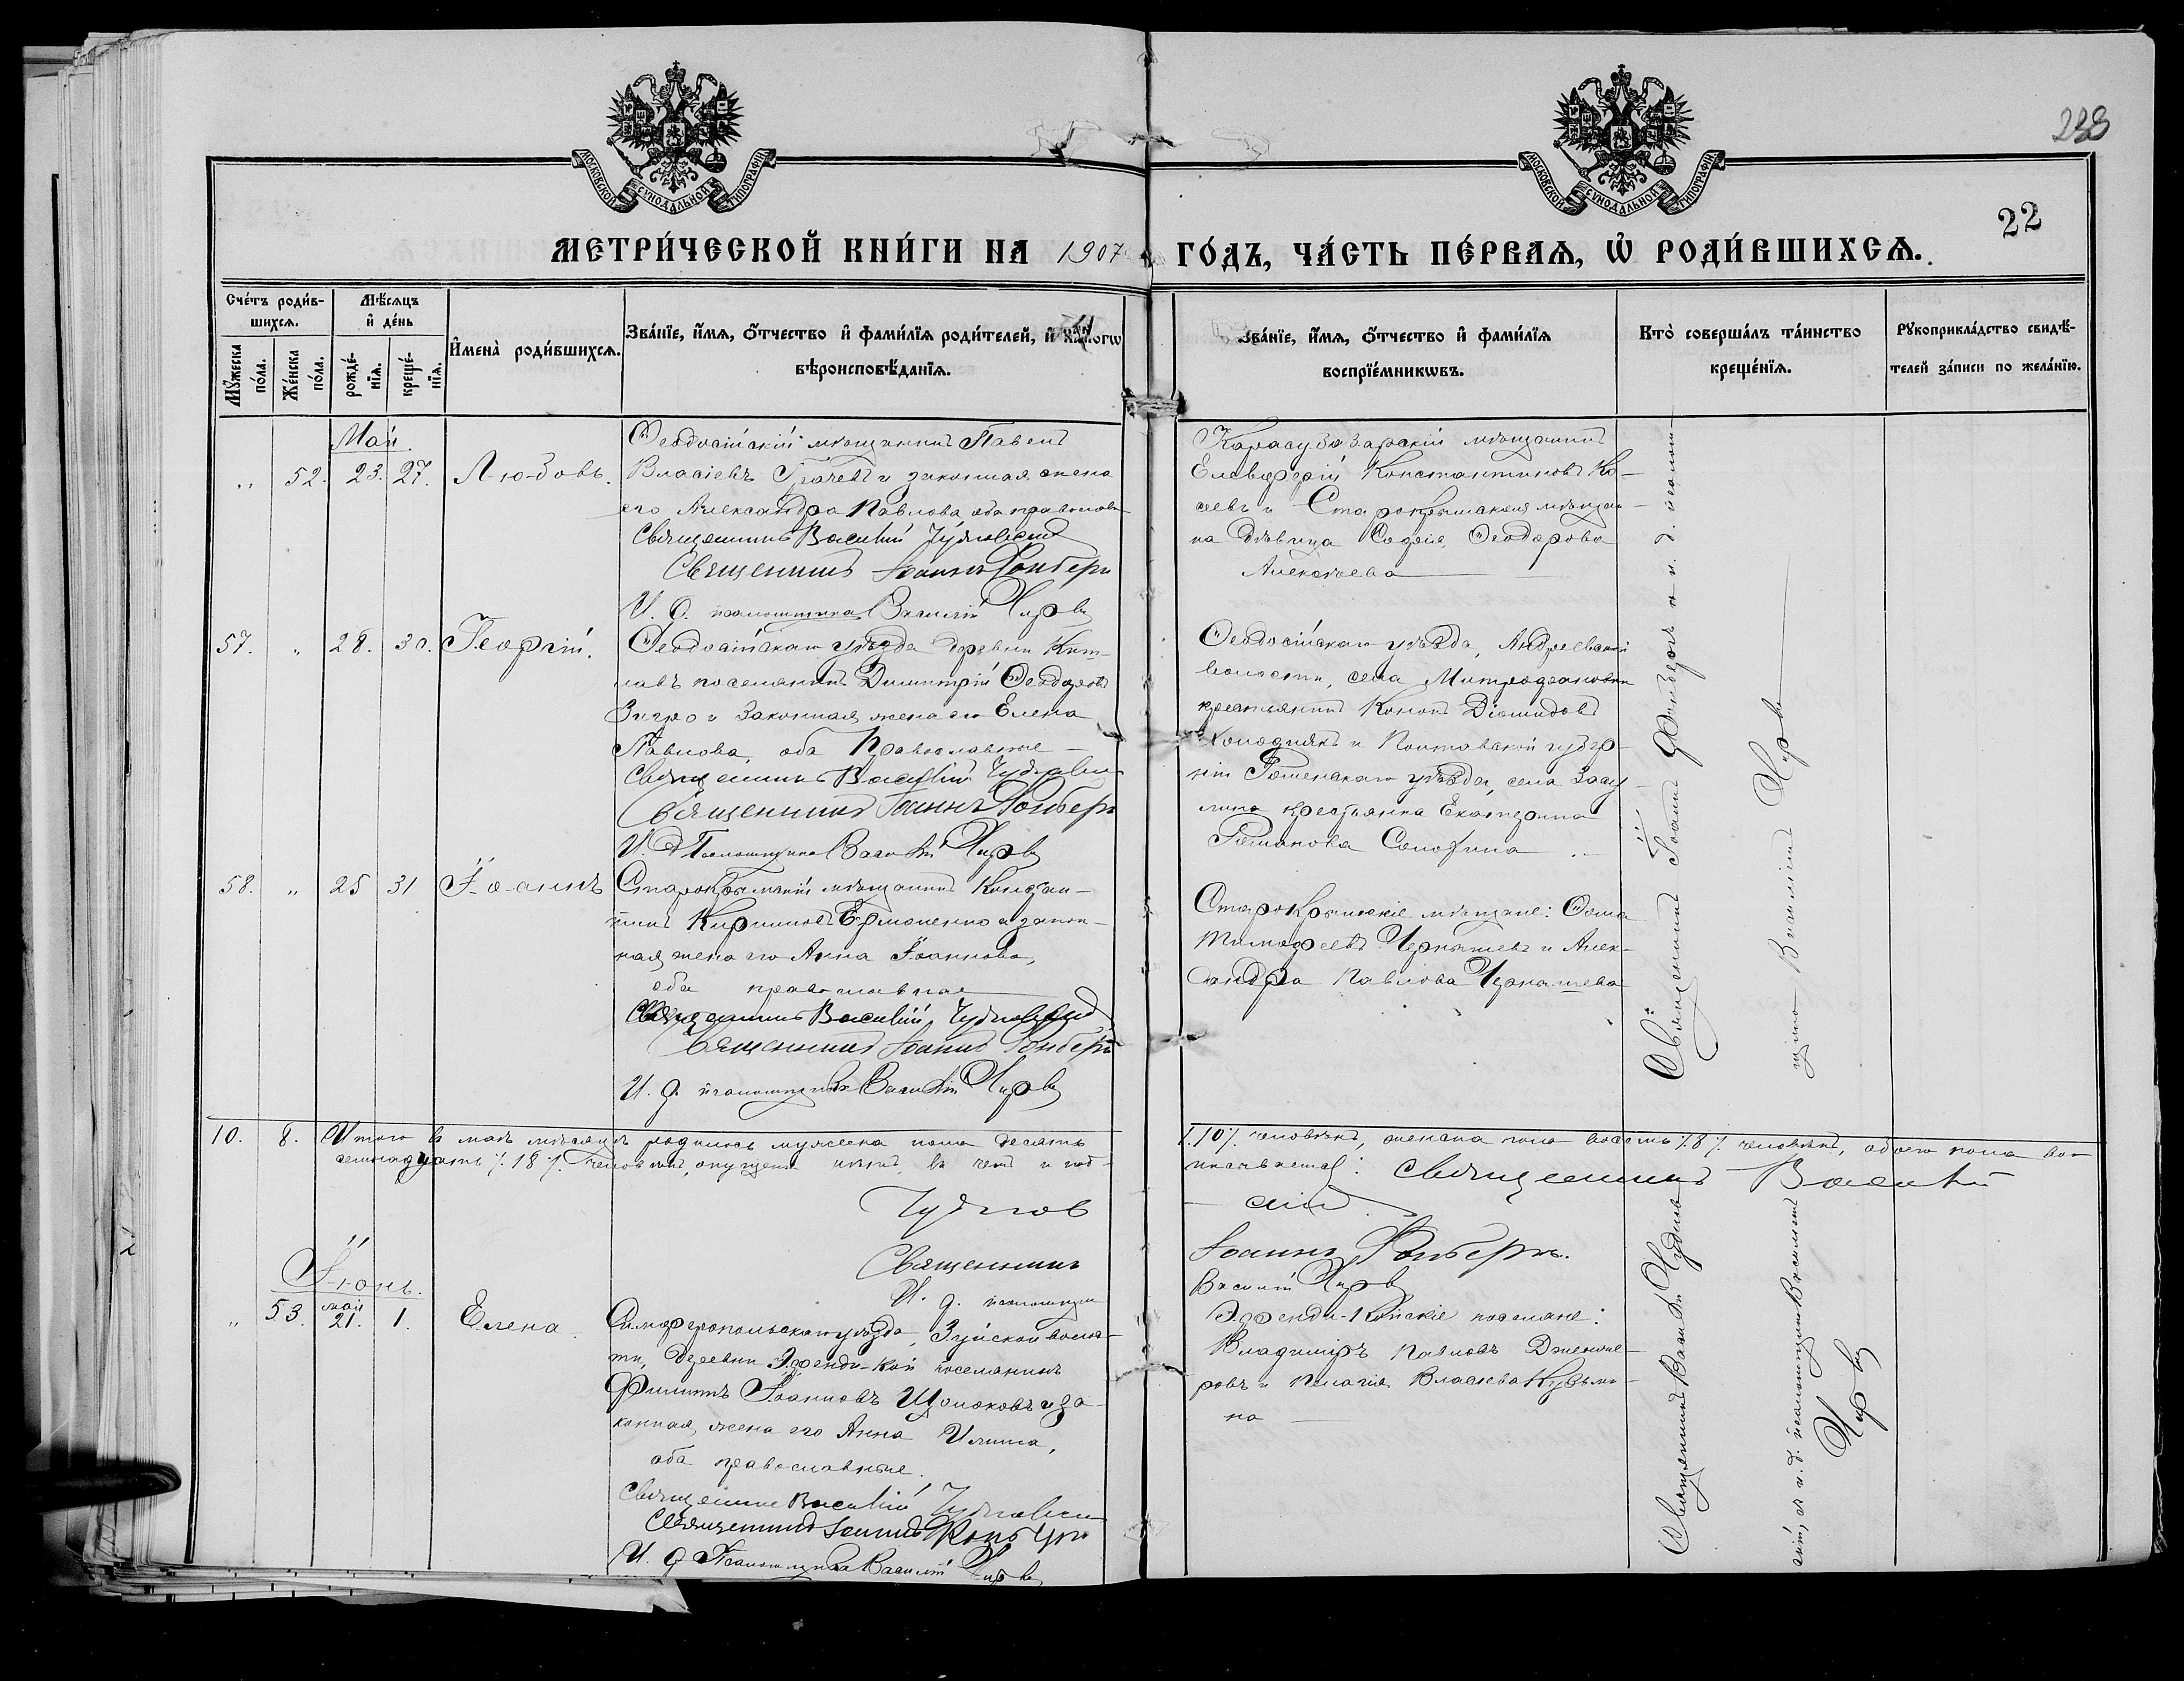 МОСКОВСКОЙ СѴНОДАЛЬНОЙ ТИПОГРАФІИ
МОСКОВСКОЙ СѴНОДАЛЬНОЙ ТИПОГРАФІИ
22
МЕТРИ́ЧЕСКОЙ КНИ́ГИ НА 1907 ГО́ДЪ, ЧА́СТЬ ПЕ́РВАЯ, Ѡ҆ РОДИ́ВШИХСЯ.
Сче́тъ роди́в-
шихся.
Мꙋ́жеска по́ла.
Же́нска по́ла.
Мѣ́сяцъ
и҆ де́нь
рожде́-
нїя.
креще́-
нїя.
И҆мена̀ роди́вшихся.
Зва́нїе, и҆́мя, ѻ҆́тчество и҆ фами́лїя роди́телей, и҆
вѣроисповѣ́данїя.
Зва́нїе, и҆́мя, ѻ҆́тчество и҆ фами́лїя
воспрїе́мникѡвъ.
Кто̀ соверша́лъ та́инство
креще́нїя.
Рꙋкоприкла́дство свидѣ́-
телей за́писи по жела́нїю.
Май
„ 52. 23. 27. Любовь.
Ѳеодосійскій мѣщанинъ Павелъ
Власіевъ Грачевъ и законная жена
его Александра Павлова, оба православн
Священникъ Василій Чудновскій
Священникъ Іоаннъ
И. д. псаломщика Василій
Карасубазарскій мѣщанинъ
Елевферій Константиновъ Ко-
севъ и Старокрымская мѣщан-
ка дѣвица Софія Ѳеодорова
Алексѣева
57. „ 28. 30. Георгій.
Ѳеодосійскаго уѣзда деревни Кит-
лавъ поселянинъ Димитрій Ѳеодоровъ
Зигро и законная жена его Елена
Павлова, оба православные
Священникъ Василій Чудновскій
Священникъ Іоаннъ
И. д. Псаломщика Василій
Ѳеодосійскаго уѣзда, Андреевской
волости, села Митрофановки
крестьянинъ Кононъ Діомидовъ
Холоднякъ и Полтавской губер-
ніи Роменскаго уѣзда, села Засу-
лина крестьянка Екатерина
Романова
58. „ 25 31 Іоаннъ
Старокрымскій мѣщанинъ Констан-
тинъ Кирилловъ Ермоленко и закон-
ная жена его Анна Іоаннова,
оба православные
Священникъ Василій Чудновскій
Священникъ Іоаннъ
И. д. псаломщика Василій
Старокрымскіе мѣщане: Ѳома
Тимофеевъ Чернышевъ и Алек-
сандра Павлова Чернышева
Священникъ Іоаннъ и и. д. псалом-
щика Василій
10. 8. Итого въ маѣ мѣсяцѣ родилось мужеска пола десять /.10/. человѣкъ, женска пола восемь /.8/. человѣкъ, обоего пола во-
семнадцать /.18/. человѣкъ, въ чемъ и под-
писываемся: Священникъ Василій
Чудновскій
Священникъ Іоаннъ
И. д. псаломщика Василій
Іюнь.
„ 53. май 21. 1. Елена
Симферопольскаго уѣзда, Зуйской волос-
ти, деревни Эфенди-Кой поселянинъ
Филиппъ Іоанновъ и за-
конная жена его Анна Ильина,
оба православные.
Священникъ Василій Чудновскій
Священникъ Іоаннъ
И. д. Псаломщика Василій
Эфенди-Койскіе поселяне:
Владиміръ Павловъ
ровъ и Пелагія Власіева Кузьми-
на
Священникъ Василій Чуднов-
скій, и и. д. псаломщика Василій